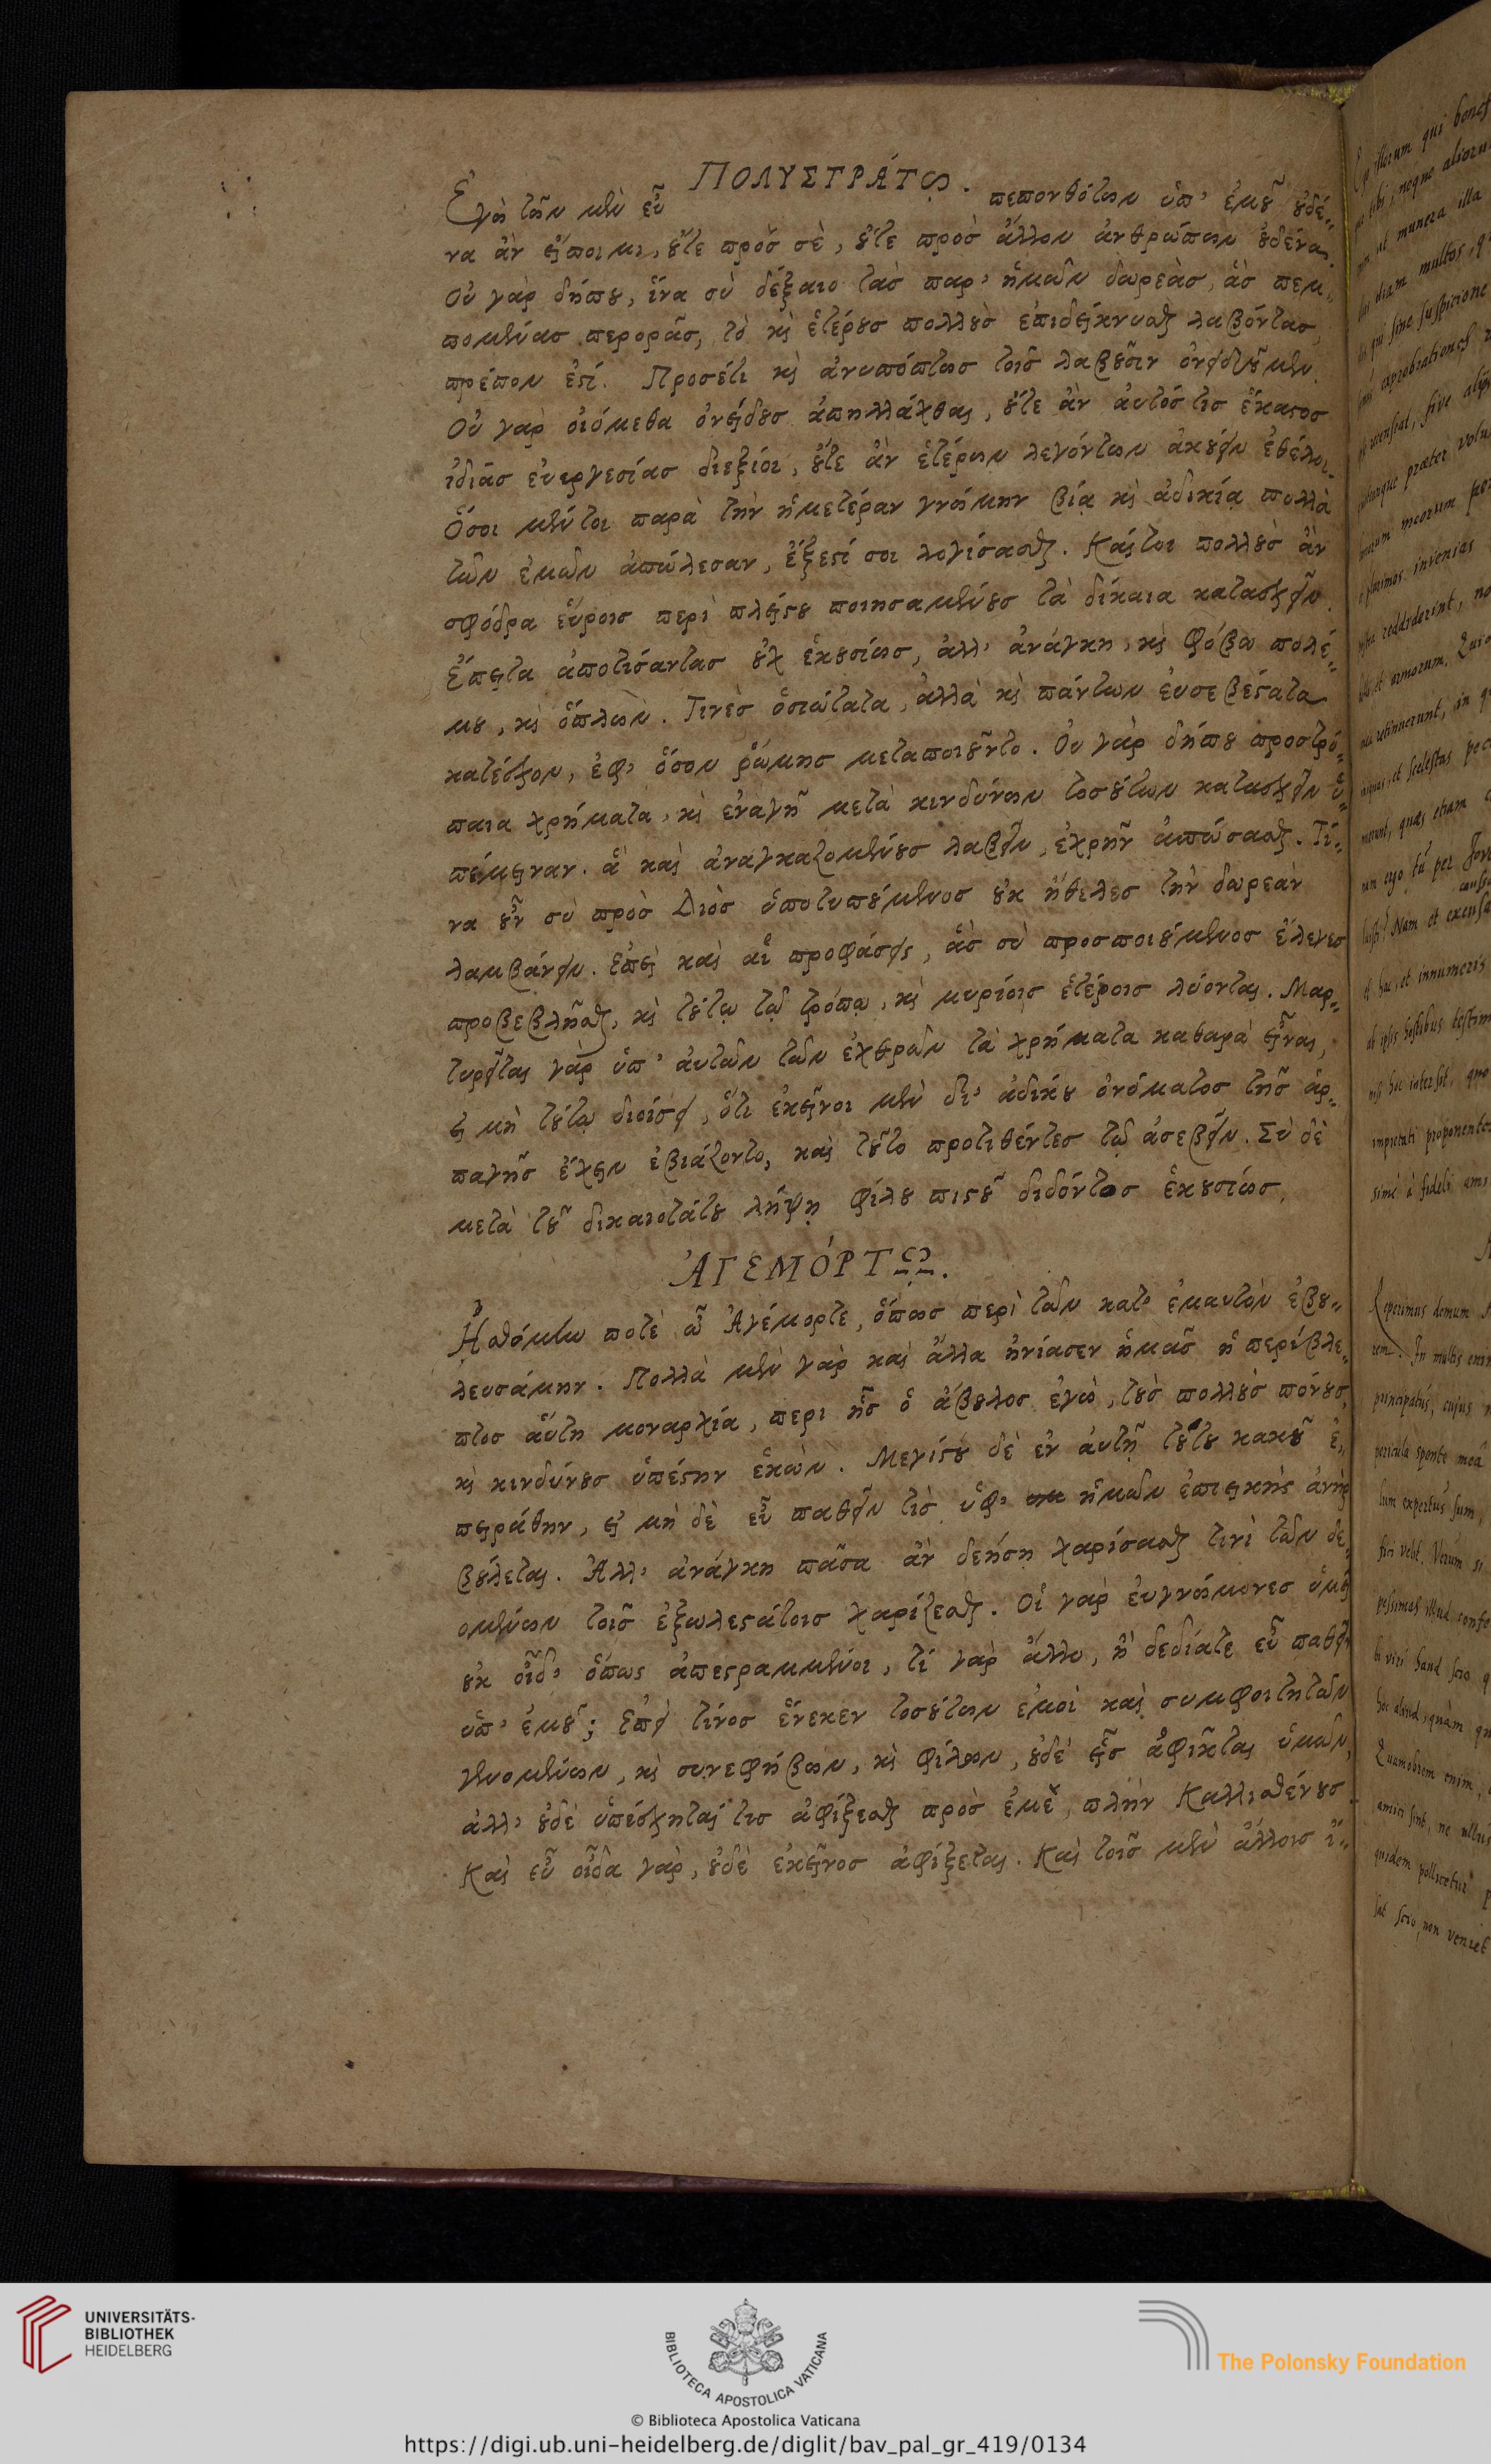 ΠΟΛΥΣΤΡΆΤΩ.
Ἐγὼ τῶν μὲν εὖ πεπονθότων ὑπ' ἐμοῦ οὐδέ-
να ἂν εἴποιμι, οὔτε πρὸς σὲ, οὔτε πρὸς ἄλλον ἀνθρώπων οὐδένα.
Οὐ γὰρ δήπου, ἵνα σὺ δέξαιο τὰς παρ' ἡμῶν δωρεὰς, ἃς πεμ-
πομένας περορᾶς, τὸ καὶ ἑτέρους πολλοὺς ἐπιδείκνυσθαι λαβόντας,
πρέπον ἐστί. Προσέτι καὶ ἀνυπόπτως τοῖς λαβοῦσιν
Οὐ γὰρ οἰόμεθα ὀνείδους ἀπηλλάχθαι, οὔτε ἂν αὐτός τις ἕκαστος
ἰδίας εὐεργεσίας διεξίοι, οὔτε ἂν ἑτέρων λεγόντων ἀκούειν ἐθέλοι.
Ὅσοι μέντοι παρὰ τὴν ἡμετέραν γνώμην βίᾳ καὶ ἀδικίᾳ πολλὰ
τῶν ἐμῶν ἀπώλεσαν, ἔξεστί σοι λογίσασθαι. Καίτοι πολλοὺς ἂν
σφόδρα εὕροις περὶ πλείστου ποιησαμένους τὰ δίκαια κατασχεῖν.
Ἔπειτα ἀποτίσαντας οὐχ ἑκουσίως, ἀλλ' ἀνάγκη, καὶ φόβω πολέ-
μου, καὶ ὅπλων. Τινὲς ὁσιώτατα, ἀλλὰ καὶ πάντων εὐσεβέστατα
κατέσχον, ἐφ' ὅσον ῥώμης μεταποιοῦντο. Οὐ γὰρ δήπου προστρό-
παια χρήματα, καὶ ἐναγῆ μετὰ κινδύνων τοσούτων κατασχεῖν ὑ-
πέμειναν. ἃ καὶ ἀναγκαζομένους λαβεῖν, ἐχρῆν ἀπώσασθαι. Τί-
να οὖν σὺ πρὸς Διὸς ὑποτυπούμενος οὐκ ἤθελες τὴν δωρεὰν
λαμβάνειν. Ἐπεὶ καὶ αἱ προφάσεις, ἃς σὺ προσποιούμενος ἔλεγες
προβεβλῆσθαι, καὶ τούτῳ τῷ τρόπῳ, καὶ μυρίοις ἑτέροις λύονται. Μαρ-
τυρεῖται γὰρ ὑπ' αὐτῶν τῶν ἐχθρῶν τὰ χρήματα καθαρὰ εἶναι,
εἰ μὴ τούτῳ διοίσει, ὅτι ἐκεῖνοι μὲν δι' ἀδίκου ὀνόματος τῆς ἁρ-
παγῆς ἔχειν ἐβιάζοντο, καὶ τοῦτο προτιθέντες τῷ ἀσεβεῖν. Σὺ δὲ
μετὰ τοῦ δικαιοτάτου λήψῃ φίλου πιστοῦ διδόντος ἑκουσίως.
ἈΓΕΜΌΡΤΩ.
Ἠσθόμην ποτὲ ὦ Ἀγέμορτε, ὅπως περὶ τῶν κατ' ἐμαυτὸν ἐβου-
λευσάμην. Πολλὰ μὲν γὰρ καὶ ἄλλα ἠνίασεν ἡμᾶς ἡ περίβλε-
πτος αὕτη μοναρχία, περὶ ἧς ὁ ἄβουλος ἐγὼ, τοὺς πολλοὺς πόνους,
καὶ κινδύνους ὑπέστην ἑκών. Μεγίστου δὲ ἐν αὐτῇ τούτου κακοῦ ἐ-
πειράθην, εἰ μὴ δὲ εὖ παθεῖν τις ὑφ' ἡμῶν ἐπιεικὴς ἀνὴρ
βούλεται. Ἀλλ' ἀνάγκη πᾶσα ἂν δεήσῃ χαρίσασθαι τινὶ τῶν δε-
ομένων τοῖς ἐξωλεστάτοις χαρίζεσθαι. Οἱ γὰρ εὐγνώμονες ὑμεῖς
οὐκ οἶδ' ὅπως ἀπεστραμμένοι, τί γὰρ ἄλλο, ἢ δεδίατε εὖ παθεῖν
ὑπ' ἐμοῦ; Ἐπεὶ τίνος ἕνεκεν τοσούτων ἐμοὶ καὶ συμφοιτητῶν
γενομένων, καὶ συνεφήβων, καὶ φίλων, οὐδὲ εἷς ἀφῖκται ὑμῶν,
ἀλλ' οὐδὲ ὑπέσχηταί τις ἀφίξεσθαι πρὸς ἐμὲ, πλὴν Καλλισθένους.
Καὶ εὖ οἶδα γὰρ, οὐδὲ ἐκεῖνος ἀφίξεται. Καὶ τοῖς μὲν ἄλλοις ἴ-
qui
neque aliorum
ut munera illa
etiam multos
qui sine suspicione
exprobrationes
recenseat, sive
praeter
meorum
invenias
reddiderint,
et armorum.
retinuerunt, in
et scelestas
quas etiam
ergo tu per
causa
Nam et
et hac, et innumeris
ab ipsis hostibus
hoc intersit,
impietati proponentes
a fideli
Reperimus demum
In multis enim
principatus, cujus
pericula sponte meâ
expertus sum,
velit. Verùm si
pessimas illud
viri haud scio
hoc aliud, quàm
Quamobrem enim,
amici sint, ne ullus
quidem pollicetur
sat scio, non veniet
UNIVERSITÄTS-
BIBLIOTHEK
HEIDELBERG
BIBLIOTECA APOSTOLICA VATICANA
The Polonsky Foundation
© Biblioteca Apostolica Vaticana
https://digi.ub.uni-heidelberg.de/diglit/bav_pal_gr_419/0134